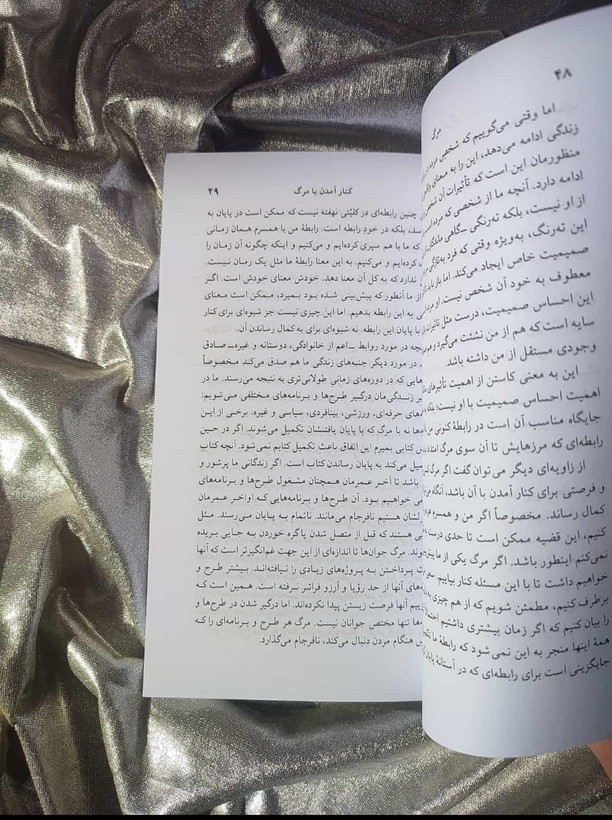 ۴۸
مرگ
اما وقتی می‌گوییم که شخص مرده
زندگی ادامه می‌دهد، این را به معنای
منظورمان این است که تأثیرات آن شخص
ادامه دارد. آنچه ما از شخصی که مرده
از او نیست، بلکه ته‌رنگی ـ گاهی ماندگار
این ته‌رنگ، به‌ویژه وقتی که فرد به‌تازگی
صمیمیت خاص ایجاد می‌کند. اما باز
معطوف به خود آن شخص نیست. او
این احساس صمیمیت، درست مثل
سایه است که هم از من نشئت می‌گیرد و
وجودی مستقل از من داشته باشد.
این به معنی کاستن از اهمیت تأثیرهای
اهمیت احساس صمیمیت با او نیست؛ بلکه
جایگاه مناسب آن است در رابطهٔ کنونی من
رابطه‌ای که مرزهایش تا آن سوی مرگ
از زاویه‌ای دیگر می‌توان گفت اگر مرگ
و فرصتی برای کنار آمدن با آن باشد، آنگاه
کمال رساند. مخصوصاً اگر من و همسرم
کنیم، این قضیه ممکن است تا حدی درست
نمی‌کنم اینطور باشد. اگر مرگ یکی از ما
خواهیم داشت تا با این مسئله کنار بیاییم
برطرف کنیم، مطمئن شویم که از هم چیزی
را بیان کنیم که اگر زمان بیشتری داشتیم
همهٔ اینها منجر به این نمی‌شود که رابطه ما
جایگزینی است برای رابطه‌ای که در آستانهٔ پایان
کنار آمدن با مرگ
۴۹
چنین رابطه‌ای در کلیّتی نهفته نیست که ممکن است در پایان به
بلکه در خود رابطه است. رابطهٔ من با همسرم همان زمانی
که ما با هم سپری کرده‌ایم و می‌کنیم و اینکه چگونه آن زمان را
کرده‌ایم و می‌کنیم. به این معنا رابطهٔ ما مثل یک رمان نیست.
ندارد که به کل آن معنا دهد. خودش معنای خودش است. اگر
از ما آنطور که پیش‌بینی شده بود بمیرد، ممکن است معنای
به این رابطه بدهیم. اما این چیزی نیست جز شیوه‌ای برای کنار
با پایان این رابطه. نه شیوه‌ای برای به کمال رساندن آن.
در مورد روابط ـ اعم از خانوادگی، دوستانه و غیره ـ صادق
در مورد دیگر جنبه‌های زندگی ما هم صدق می‌کند مخصوصاً
که در دوره‌های زمانی طولانی‌تری به نتیجه می‌رسند. ما در
زندگی‌مان درگیر طرح‌ها و پروژه‌های مختلفی می‌شویم:
حرفه‌ای، ورزشی، بینافردی، سیاسی و غیره. برخی از این
نه با مرگ که با پایان یافتنشان تکمیل می‌شوند. اگر در حین
کتابی بمیرم این اتفاق باعث تکمیل کتابم نمی‌شود. آنچه کتاب
می‌کند به پایان رساندن کتاب است. اگر زندگانی ما پرشور و
باشد تا آخر عمرمان همچنان مشغول طرح‌ها و برنامه‌های
خواهیم بود. آن طرح‌ها و برنامه‌هایی که اواخر عمرمان
هستیم نافرجام می‌مانند. ناتمام به پایان می‌رسند. مثل
هستند که قبل از متصل شدن پاگره خوردن به جایی بریده
مرگ جوان‌ها تا اندازه‌ای از این جهت غم‌انگیزتر است که آنها
پرداختن به پروژه‌های زیادی را نیافته‌اند. بیشتر طرح و
آنها از حد رؤیا و آرزو فراتر نرفته است. همین است که
آنها فرصت زیستن پیدا نکرده‌اند. اما درگیر شدن در طرح‌ها و
تنها مختص جوانان نیست. مرگ هر طرح و برنامه‌ای را که
هنگام مردن دنبال می‌کند، نافرجام می‌گذارد.